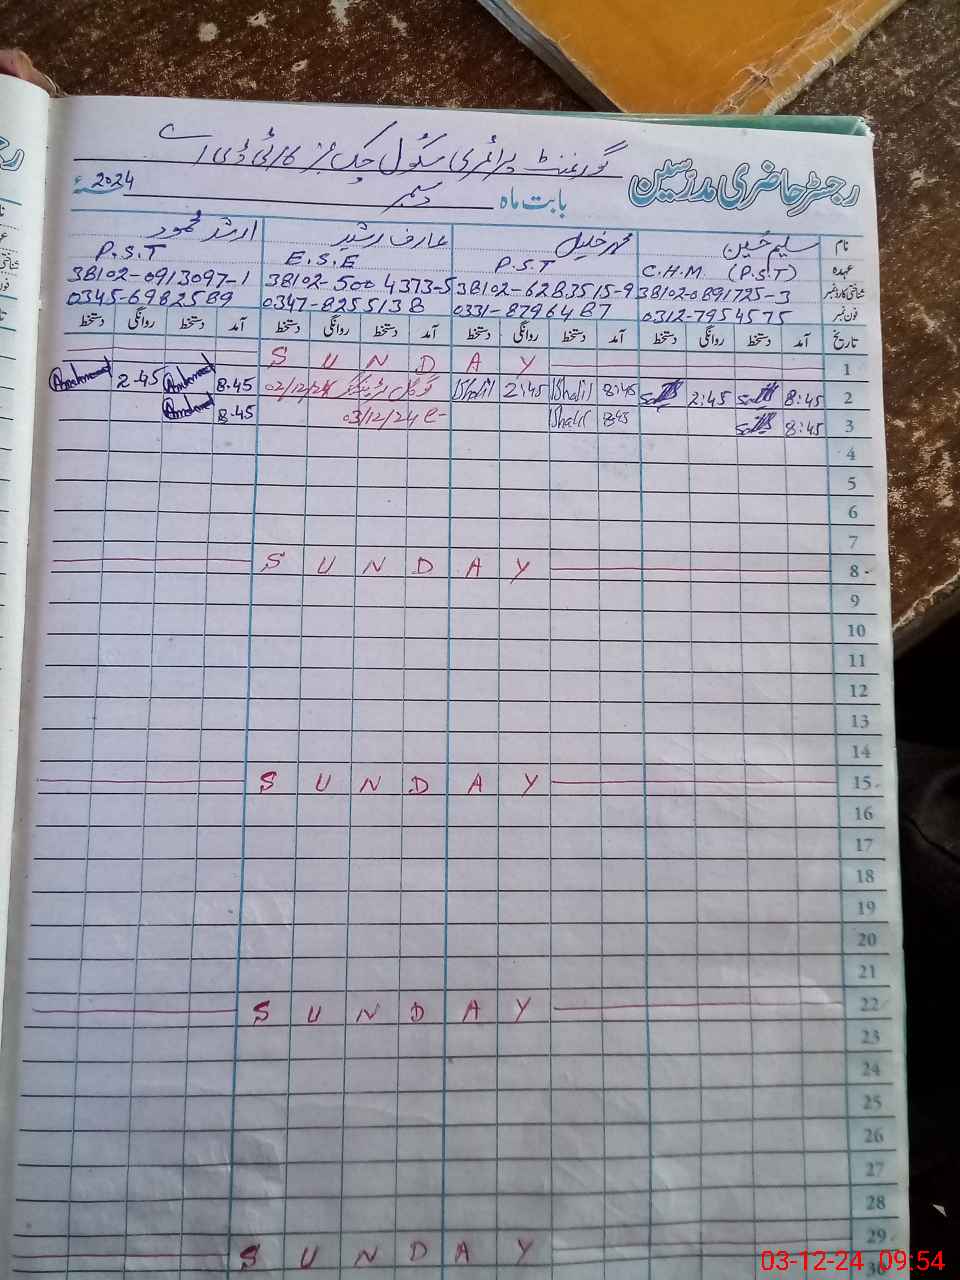 رجسٹر حاضری مدرسین گورنمنٹ پرائمری سکول چک نمبر
بابت ماہ دسمبر 2024ء
نام سلیم حسین محمد خلیل عارف رشید ارشد محمود
عہدہ C.H.M (P.S.T) P.S.T E.S.E P.S.T
شناختی کارڈ نمبر 38102-0891725-3 38102-6283515-9 38102-5004373-5 38102-0913097-1
فون نمبر 0312-7954575 0331-8796487 0347-8255138 0345-6982589
تاریخ آمد دستخط روانگی دستخط آمد دستخط روانگی دستخط آمد دستخط روانگی دستخط آمد دستخط روانگی دستخط
1 S U N D A Y
2 8:45 2:45 8:45 Khalil 2:45 Khalil 02/12/24 8.45 2.45
3 8:45 8:45 Khalil 03/12/24 8.45
4
5
6
7
8 S U N D A Y
9
10
11
12
13
14
15 S U N D A Y
16
17
18
19
20
21
22 S U N D A Y
23
24
25
26
27
28
29 S U N D A Y
30
03-12-24 09:54